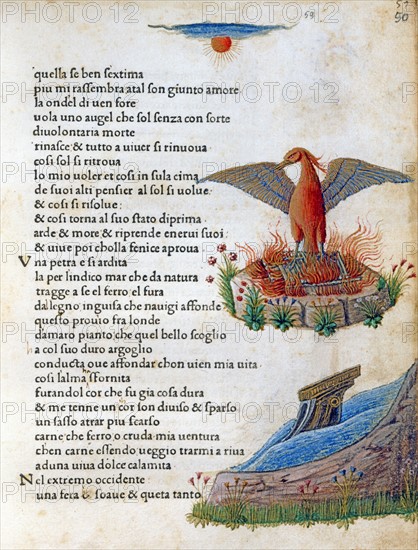 59
57
50
quella se ben sextima
piu mi rassembra atal son giunto amore
la ondel di uen fore
uola uno augel che sol senza con sorte
diuolontaria morte
rinasce & tutto a uiuer si rinuoua
cosi sol si ritroua
lo mio uoler et cosi in sula cima
de suoi alti pensier al sol si uolue
& cosi si risolue
& cosi torna al suo stato diprima
arde & more & riprende enerui suoi
& uiue poi cholla fenice aproua
Vna petra e si ardita
la per lindico mar che da natura
tragge a se el ferro el fura
dallegno inguisa che nauigi affonde
questo prouio fra londe
damaro pianto che quel bello scoglio
a col suo duro argoglio
conducta oue affondar chon uien mia uita
cosi salma sfornita
furandol cor che fu gia cosa dura
& me tenne un cor son diuiso & sparso
un sasso atrar piu scarso
carne che ferro o cruda mia uentura
chen carne essendo ueggio trarmi a riua
aduna uiua dolce calamita
Nel extremo occidente
una fera & soaue & queta tanto
PHOTO12